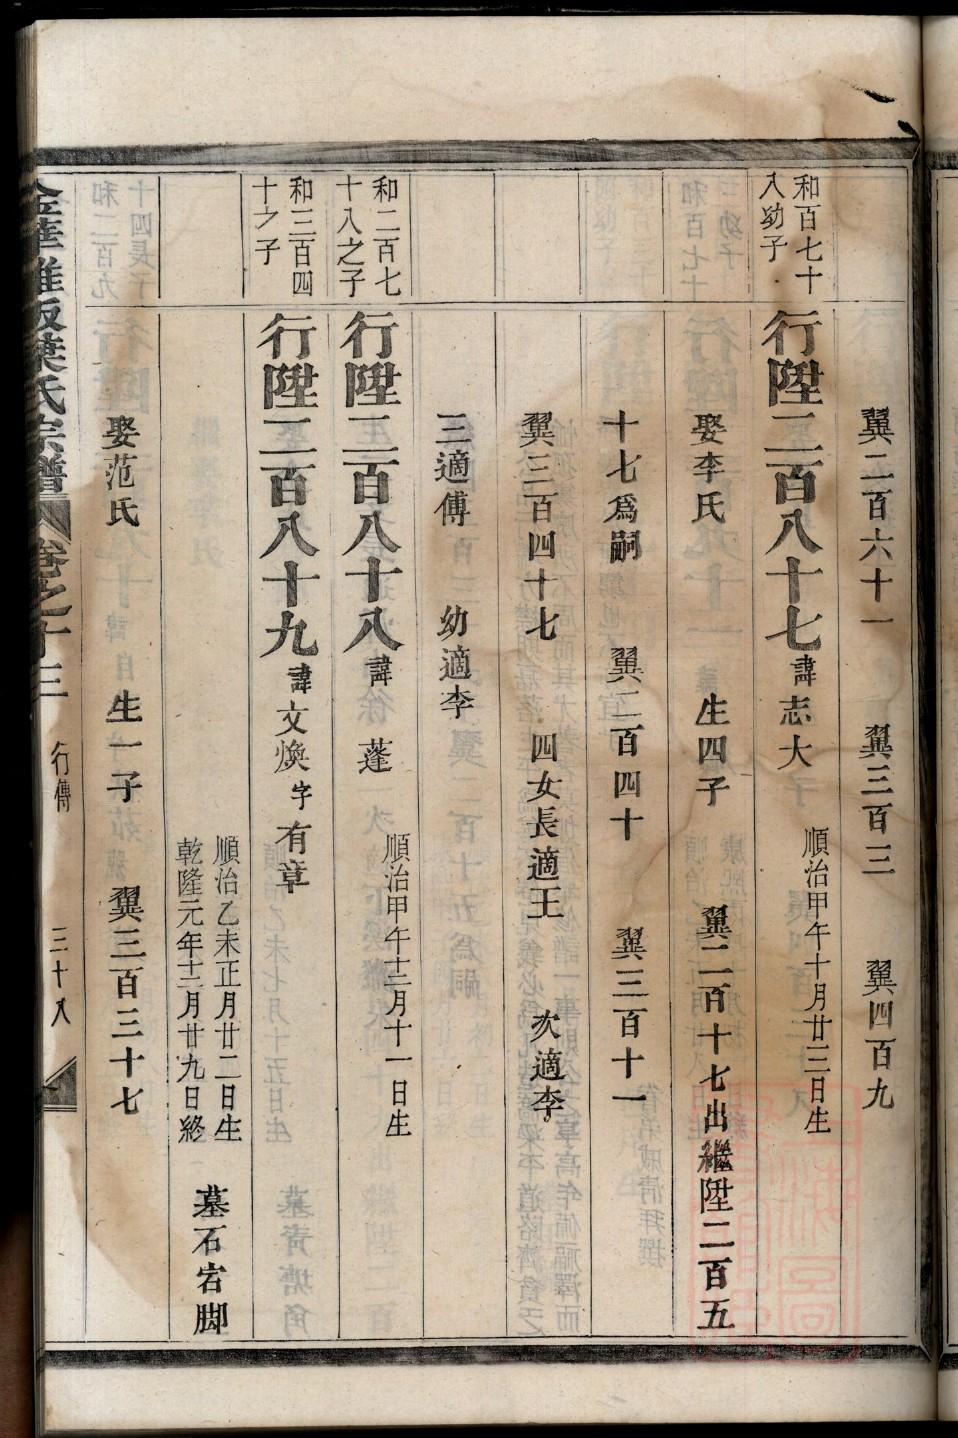 翼二百六十一　翼三百三　翼四百九
和百七十
入幼子
行陞二百八十七諱志大　順治甲午十月廿三日生
娶李氏　生四子　翼二百十七出繼陞二百五
十七爲嗣　翼二百四十　翼三百十一
翼三百四十七　四女長適王　次適李
三適傅　幼適李
和二百七
十八之子
行陞二百八十八諱蓬　順治甲午十二月十一日生
和三百四
十之子
行陞二百八十九諱文煥字有章
順治乙未正月廿二日生
乾隆元年十二月廿九日終
墓石宕脚
娶范氏　生一子　翼三百三十七
葉氏宗譜　卷之十三　行傳　三十八